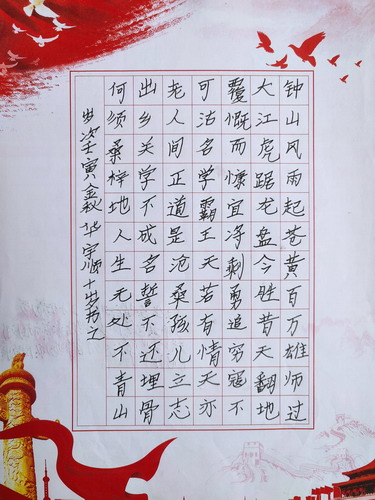 钟山风雨起苍黄百万雄师过
大江虎踞龙盘今胜昔天翻地
覆慨而慷宜净剩勇追穷寇不
可沽名学霸王天若有情天亦
老人间正道是沧桑孩儿立志
出乡关学不成名誓不还埋骨
何须桑梓地人生无处不青山
岁次壬寅金秋华宇师十岁书之